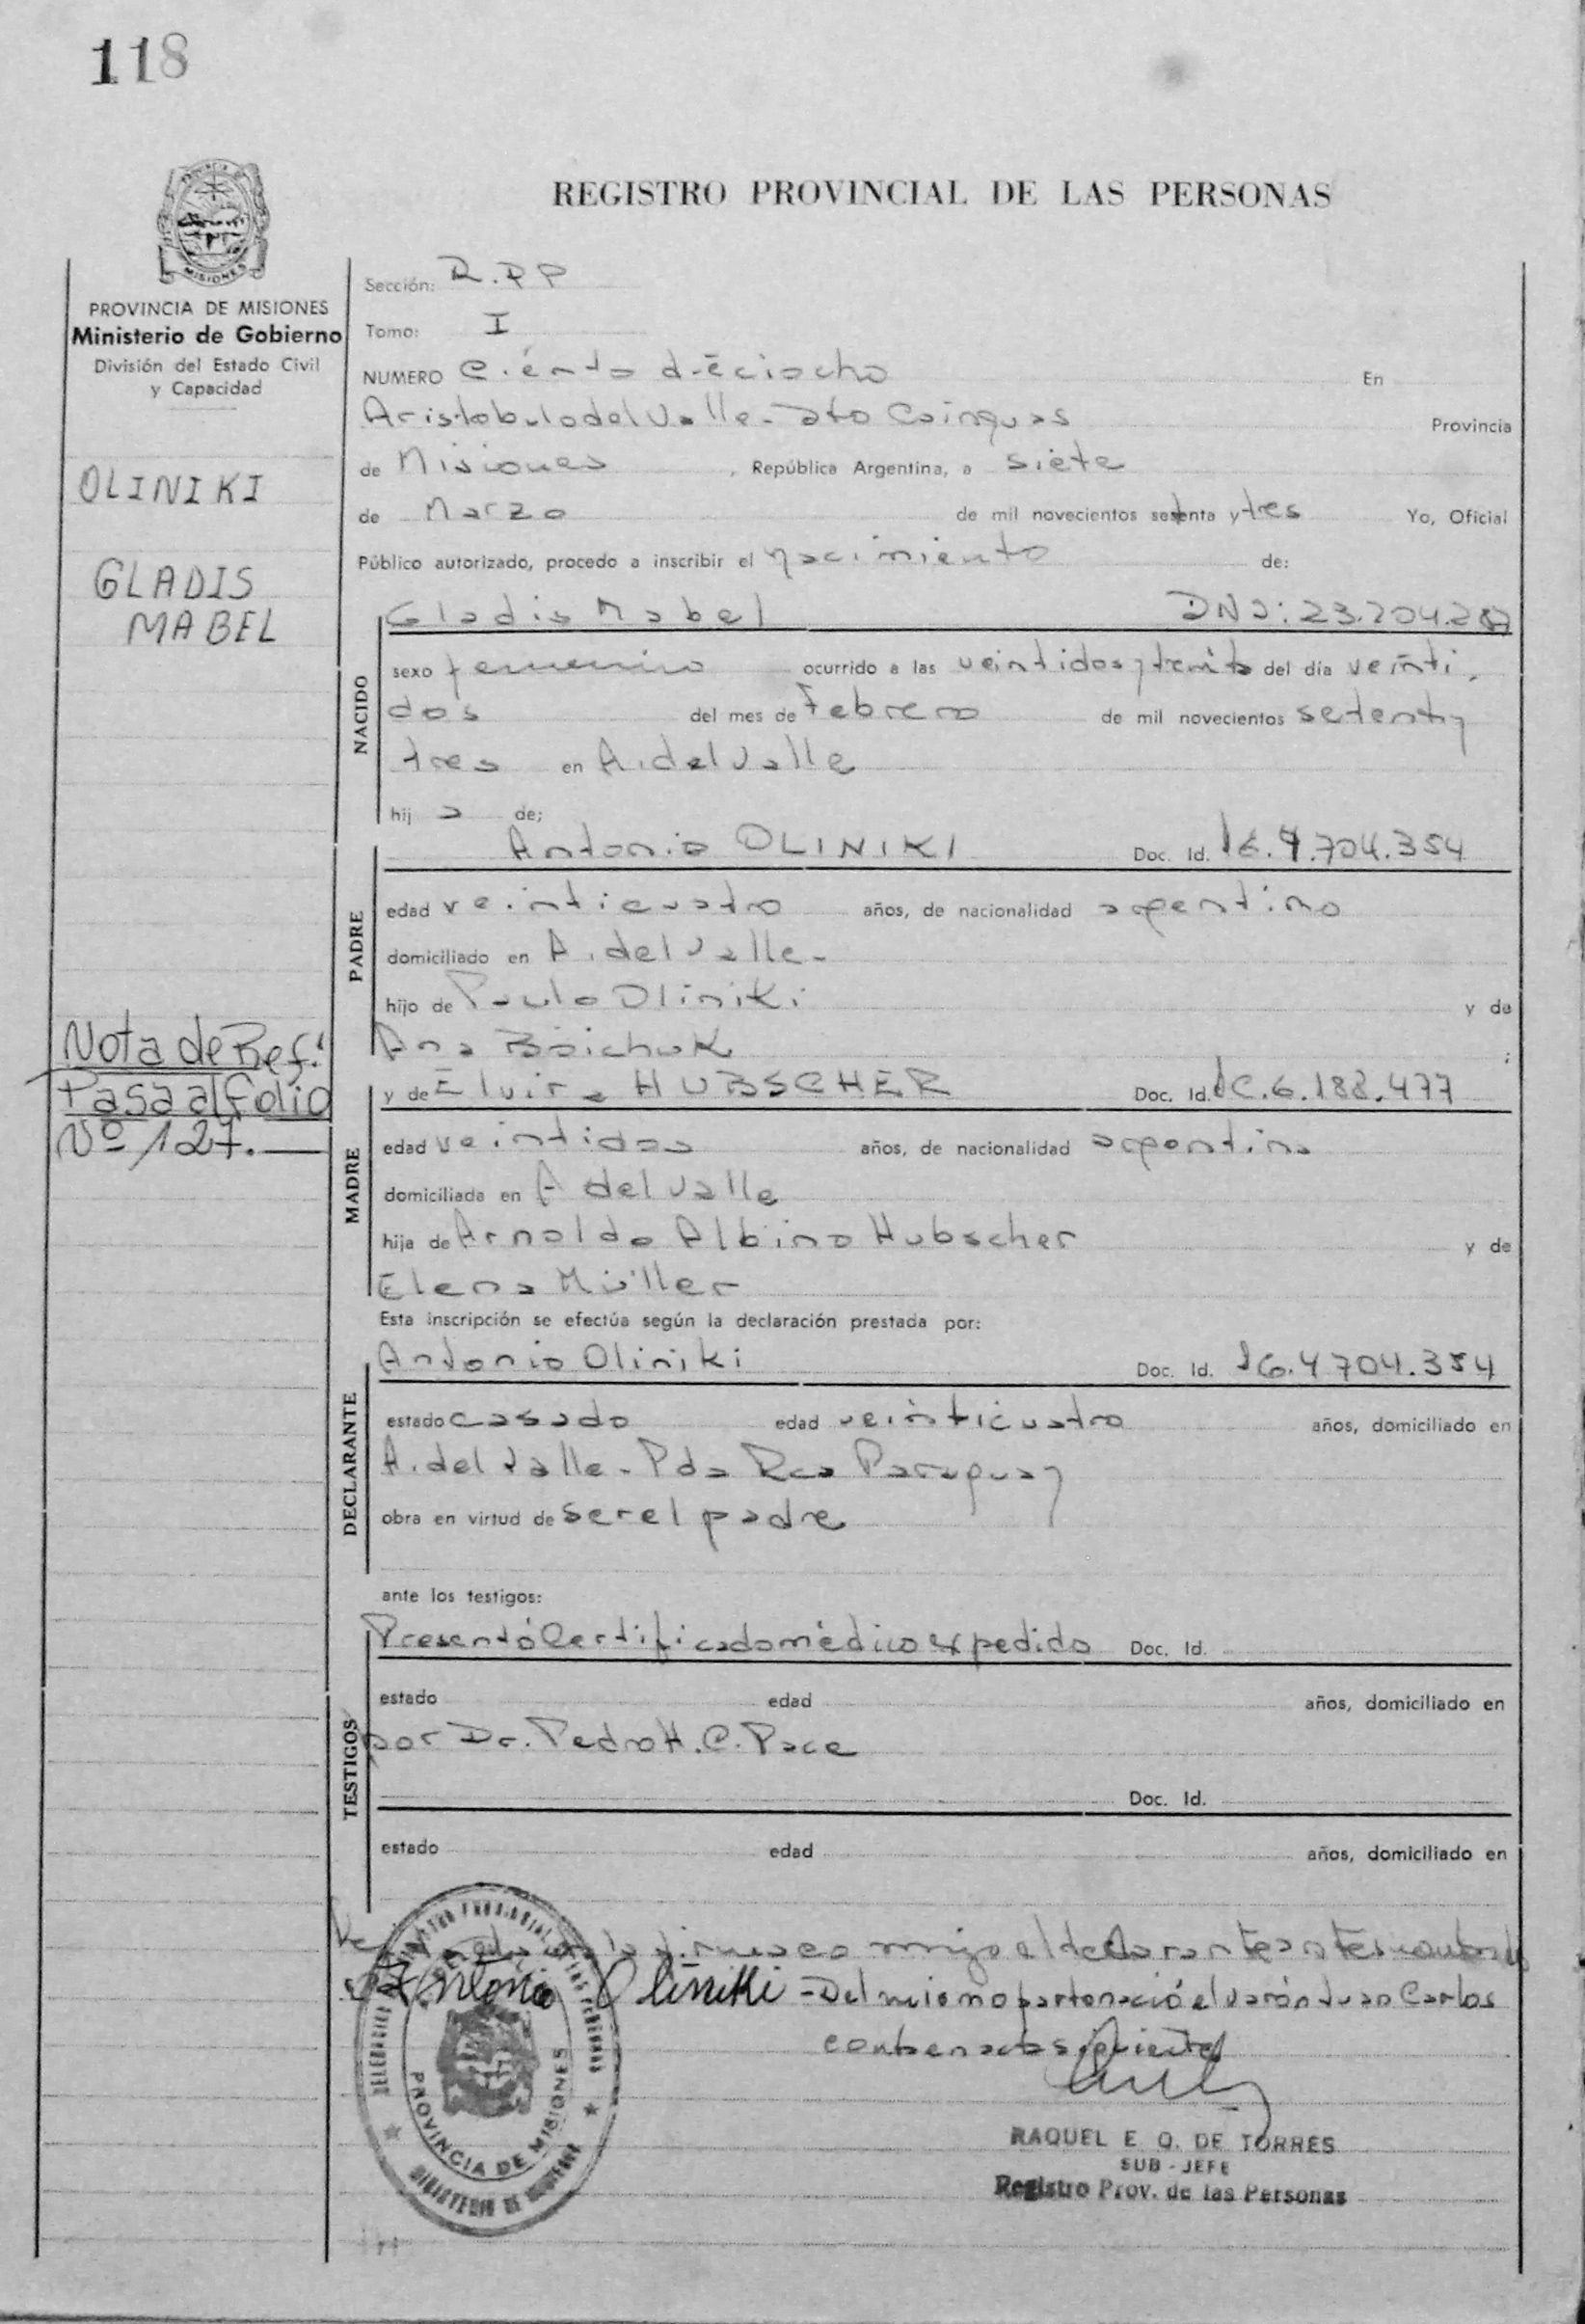 118
PROVINCIA
MISIONES
PROVINCIA DE MISIONES
Ministerio de Gobierno
División del Estado Civil
y Capacidad
OLINIKI
GLADIS
MABEL
Nota de Ref.:
Pasa al folio
Nº 127.
REGISTRO PROVINCIAL DE LAS PERSONAS
Sección: R.PP
Tomo: I
NUMERO Ciento dieciocho En
Aristobulo del Valle - Dto Cainguas Provincia
de Misiones , República Argentina, a siete
de Marzo de mil novecientos setenta y tres Yo, Oficial
Público autorizado, procedo a inscribir el nacimiento de:
NACIDO
Gladis Mabel DNI: 23.204.28
sexo femenino ocurrido a las veintidos y treinta del día veinti
dos del mes de Febrero de mil novecientos setenta y
tres en A. del Valle
hij a de;
PADRE
Antonio OLINIKI Doc. Id. 704.354
edad veinticuatro años, de nacionalidad argentino
domiciliado en A. del Valle -
hijo de Paulo Oliniki y de
Ana Boichuk ;
MADRE
y de Elvira HUBSCHER Doc. Id. 6.188.477
edad veintidos años, de nacionalidad argentina
domiciliada en A del Valle
hija de Arnoldo Albino Hubscher y de
Elena Müller
Esta inscripción se efectúa según la declaración prestada por:
DECLARANTE
Antonio Oliniki Doc. Id. 4704.354
estado casado edad veinticuatro años, domiciliado en
A. del Valle - Pda Rca Paraguay
obra en virtud de ser el padre
ante los testigos:
TESTIGOS
Presentó Certificado médico expedido Doc. Id.
estado edad años, domiciliado en
por Dr. Pedro H. C. Pace
Doc. Id.
estado edad años, domiciliado en
la firma conmigo el declarante ante
Antonio Oliniki - Del mismo parto nació el varón Juan Carlos
consta en acta siguiente
PROVINCIA DE MISIONES
RAQUEL E. Q. DE TORRES
SUB - JEFE
Registro Prov. de las Personas